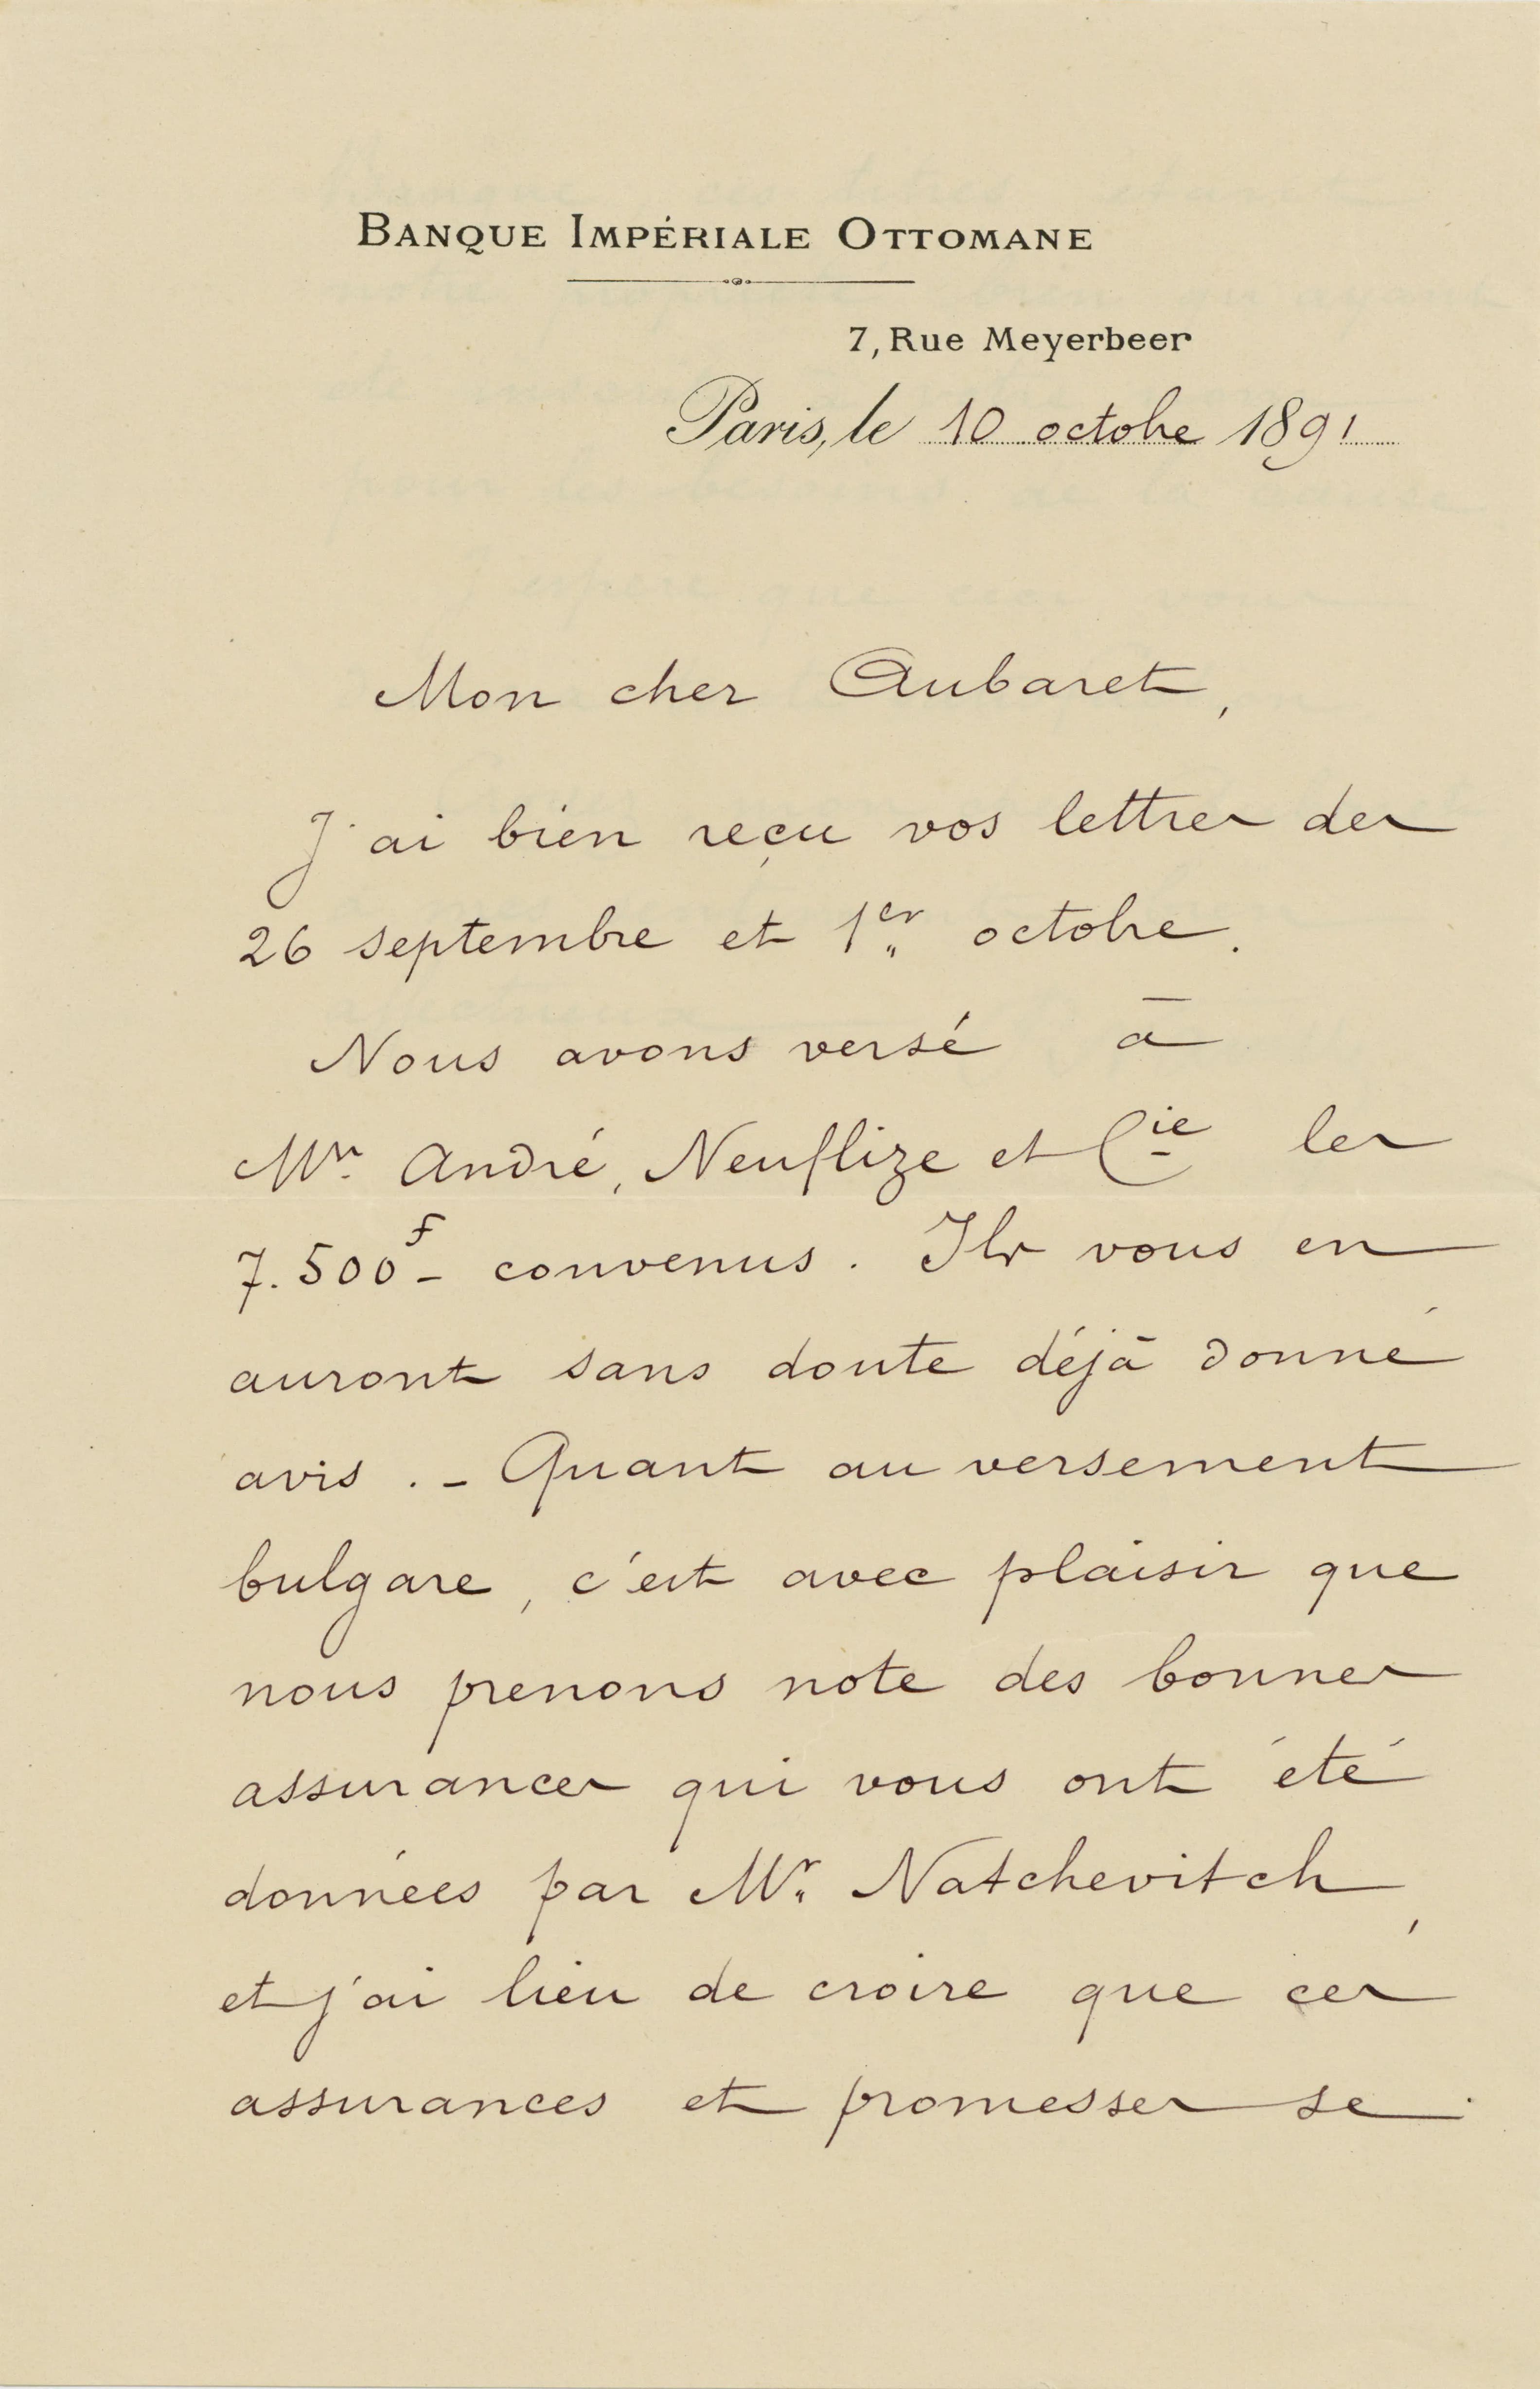 BANQUE IMPÉRIALE OTTOMANE
7, Rue Meyerbeer
Paris, le 10 octobre 1891
Mon cher Aubaret,
J'ai bien reçu vos lettres des
26 septembre et 1er octobre.
Nous avons versé à
Mrs. André, Neuflize et Cie les
7.500f- convenus. Ils vous en
auront sans doute déjà donné
avis. - Quant au versement
bulgare, c'est avec plaisir que
nous prenons note des bonnes
assurances qui vous ont été
données par Mr. Natchevitch,
et j'ai lieu de croire que ces
assurances et promesses se